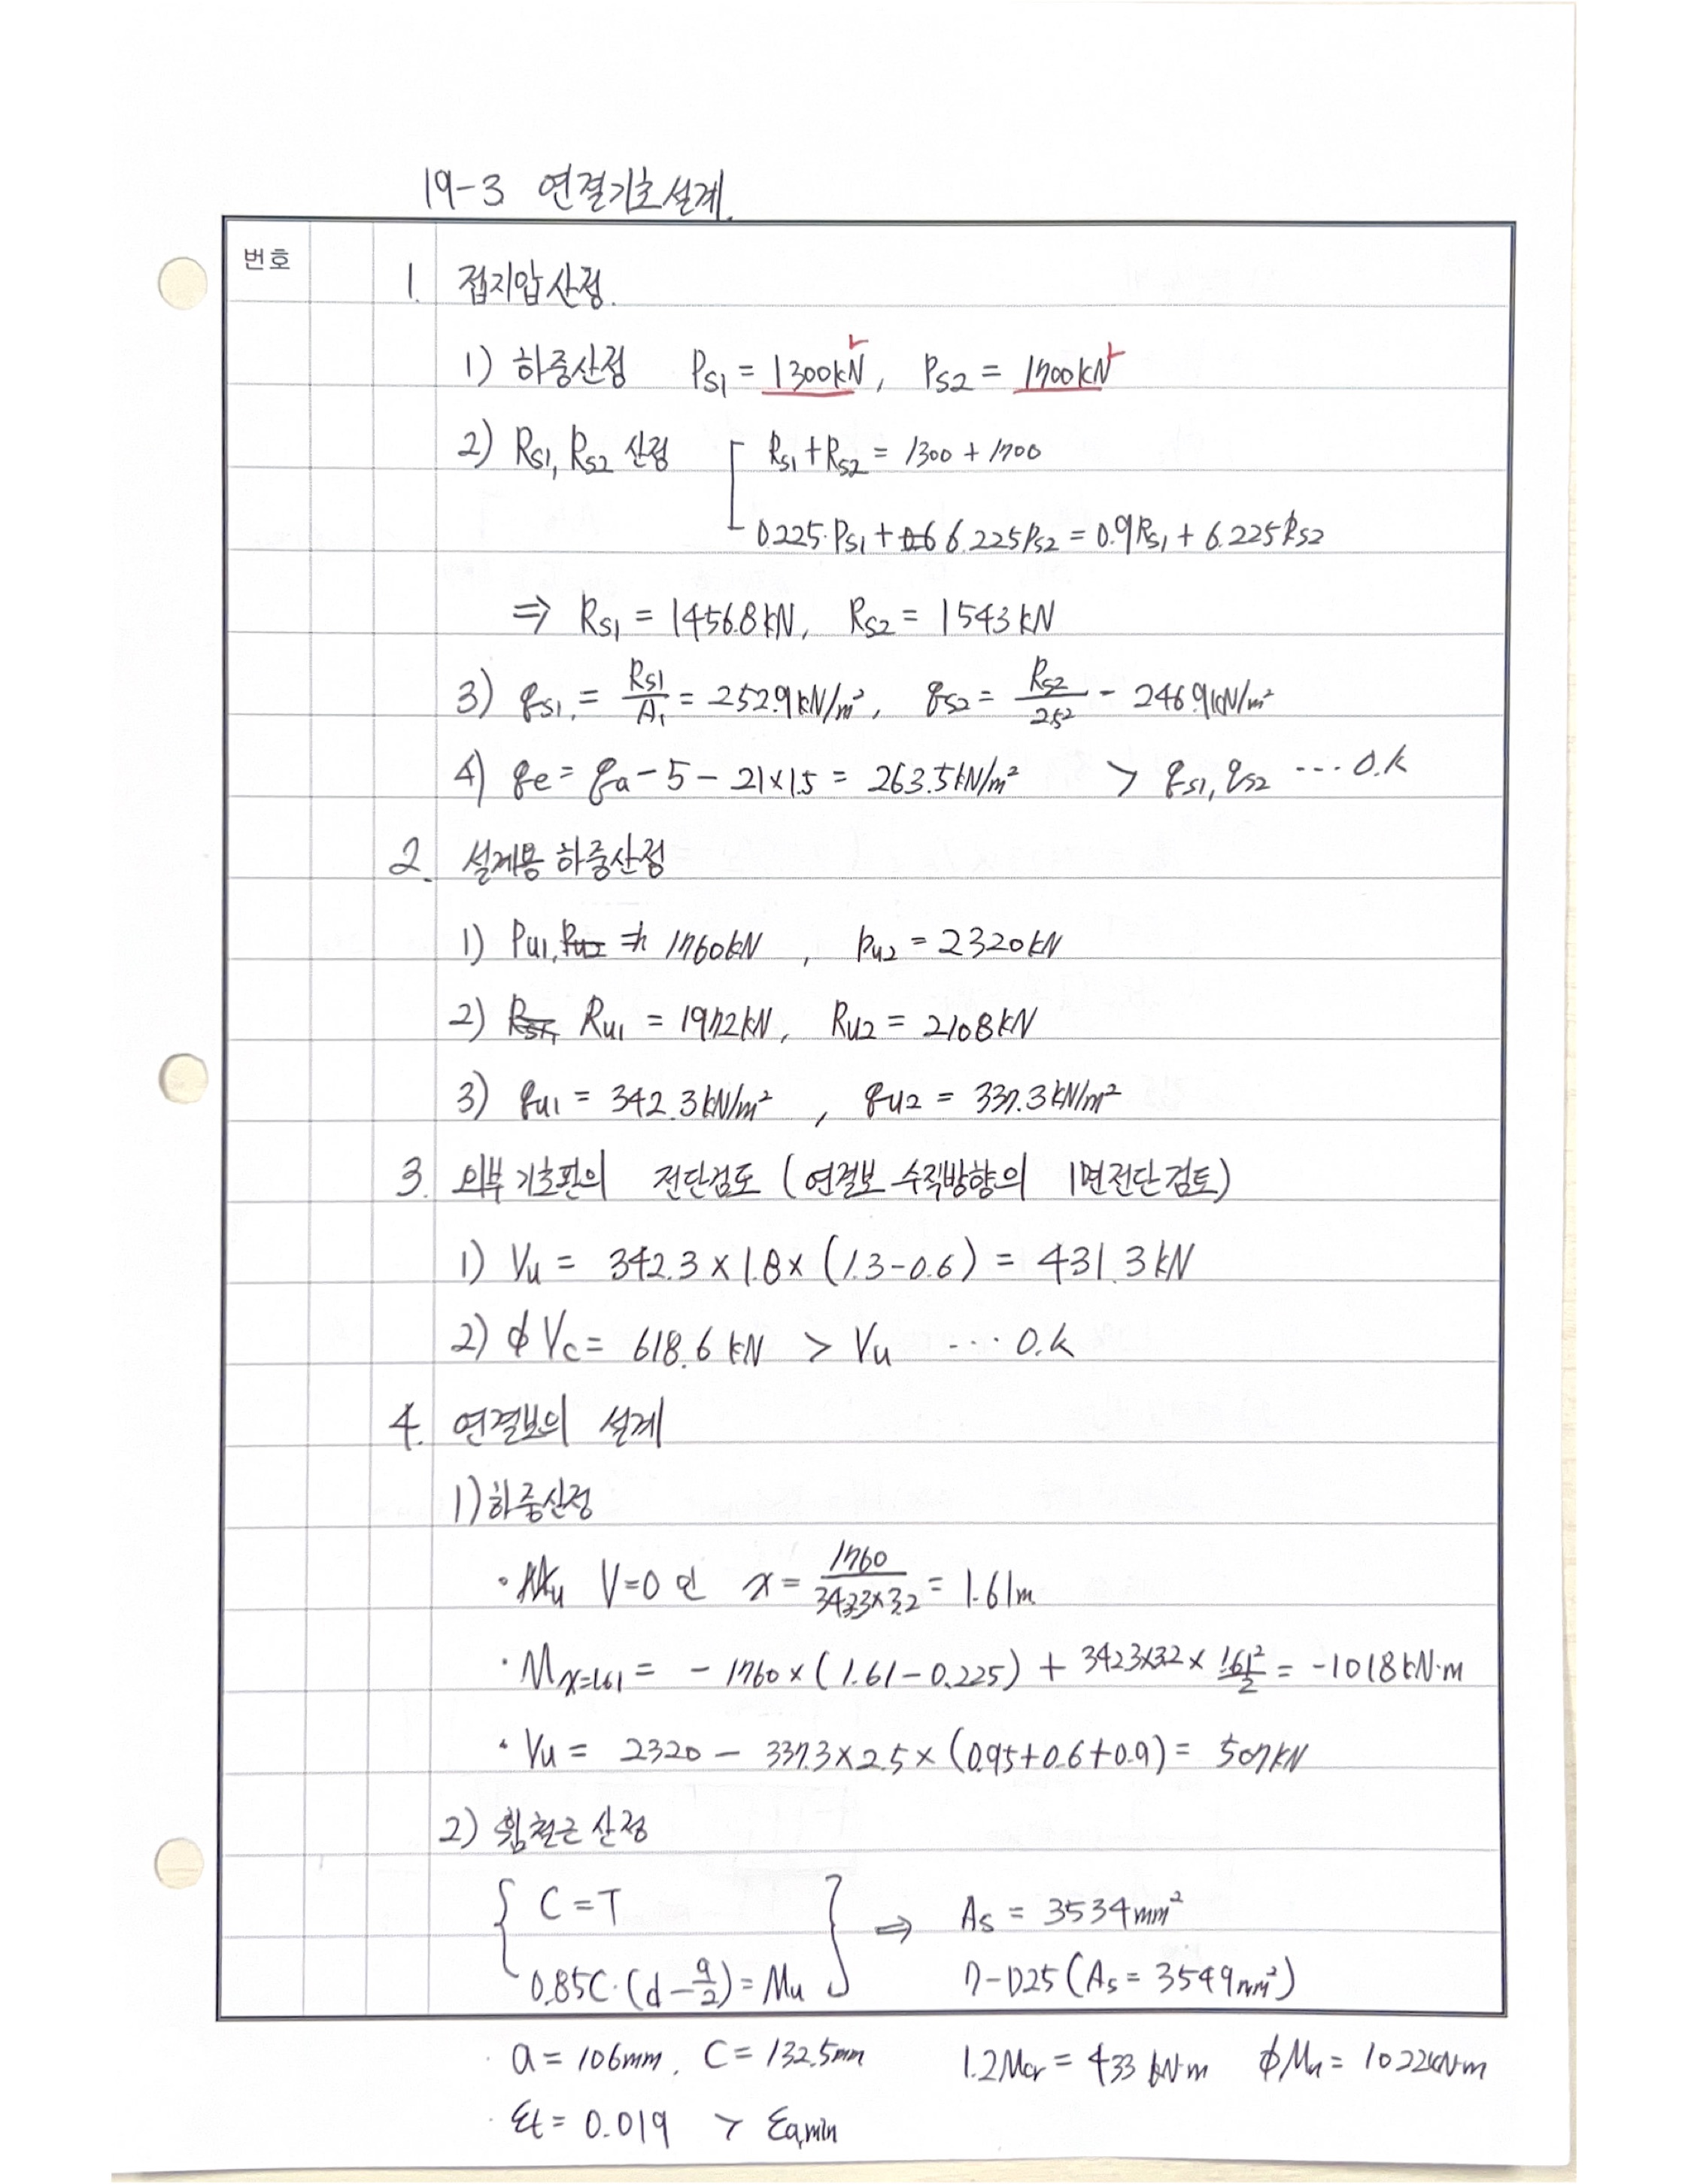 19-3 연결기초설계.
번호
1. 접지압산정.
1) 하중산정 PS1 = 1300kN, PS2 = 1700kN
2) RS1, RS2 산정 RS1 + RS2 = 1300 + 1700
0.225·PS1 + 6.225PS2 = 0.9RS1 + 6.225RS2
⇒ RS1 = 1456.8kN, RS2 = 1543kN
3) qS1 = RS1/A1 = 252.9kN/m², qS2 = RS2/2.5² - 246.9kN/m²
4) qe = qa - 5 - 21×1.5 = 263.5kN/m² > qS1, qS2 ··· O.k
2. 설계용 하중산정
1) Pu1 = 1760kN, Pu2 = 2320kN
2) Ru1 = 1972kN, Ru2 = 2108kN
3) qu1 = 342.3kN/m², qu2 = 337.3kN/m²
3. 외부기초판의 전단검토 (연결보 수직방향의 1면전단검토)
1) Vu = 342.3 × 1.8 × (1.3-0.6) = 431.3kN
2) ϕVc = 618.6 kN > Vu ··· O.k
4. 연결보의 설계
1) 하중산정
· V=0 인 x = 1760/342.3×3.2 = 1.61m
· Mx=1.61 = - 1760 × (1.61 - 0.225) + 342.3×3.2 × 1.61²/2 = -1018kN·m
· Vu = 2320 - 337.3×2.5×(0.95+0.6+0.9) = 507kN
2) 휨철근 산정
C = T ⇒ As = 3534mm²
0.85C·(d - a/2) = Mu 7-D25 (As = 3549mm²)
· a = 106mm, C = 132.5mm 1.2Mcr = 433 kN·m ϕMn = 1022kN·m
· εt = 0.019 > εa,min